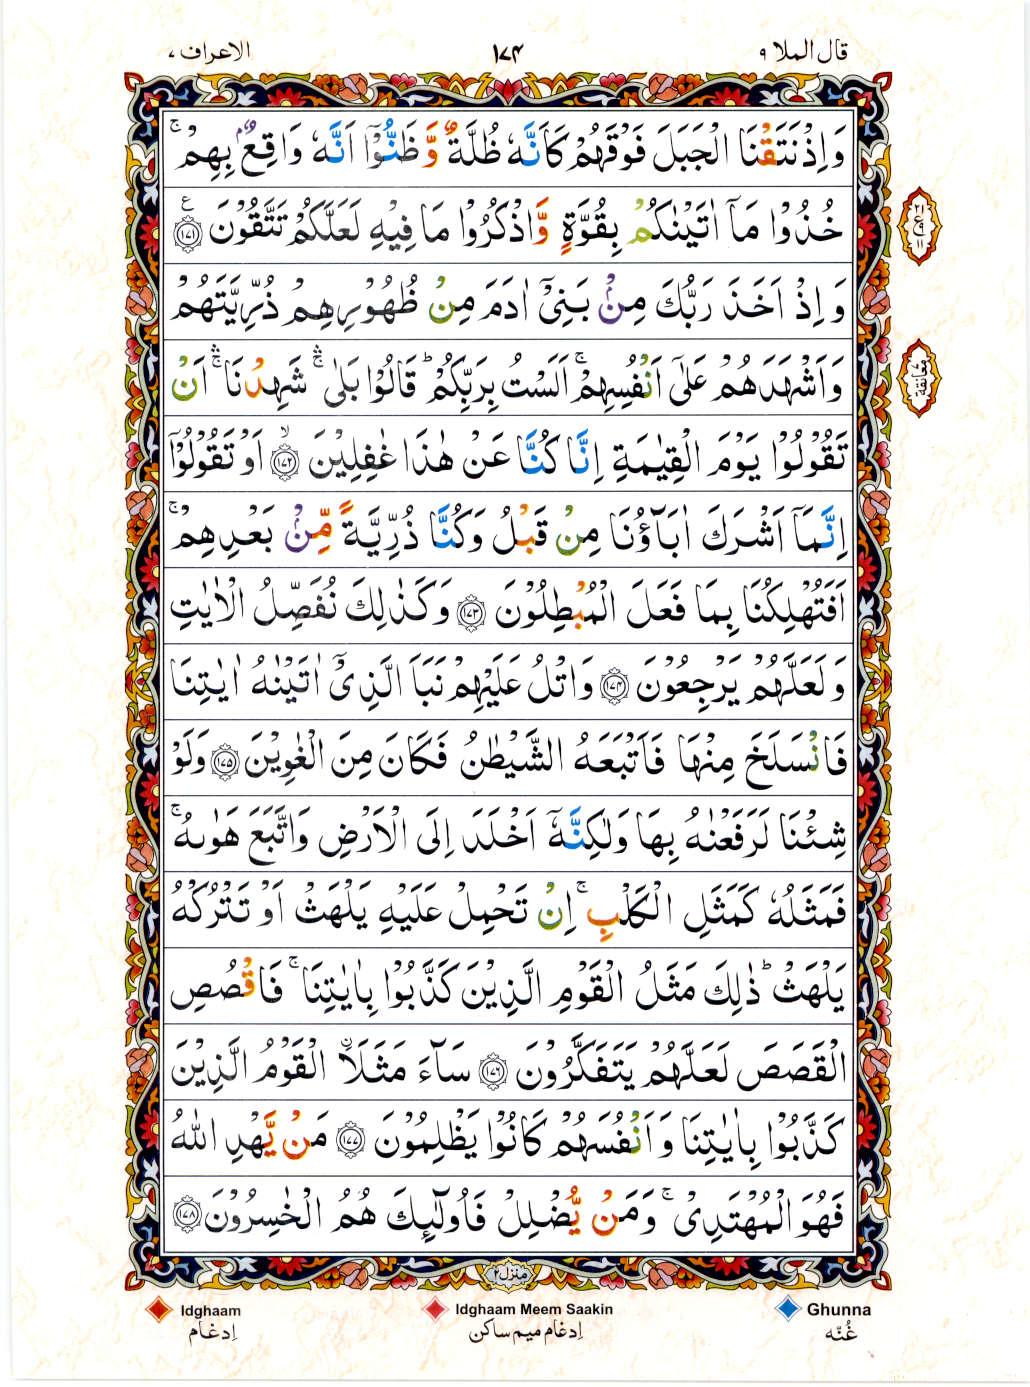 قال الملا ۹
۱۷۴
الاعراف ۷
وَاِذْ نَتَقْنَا الْجَبَلَ فَوْقَهُمْ كَاَنَّهٗ ظُلَّةٌ وَّظَنُّوْۤا اَنَّهٗ وَاقِعٌۢ بِهِمْ ۚ
خُذُوْا مَاۤ اٰتَيْنٰكُمْ بِقُوَّةٍ وَّاذْكُرُوْا مَا فِيْهِ لَعَلَّكُمْ تَتَّقُوْنَ ﴿۱۷۱﴾ ع
وَاِذْ اَخَذَ رَبُّكَ مِنْۢ بَنِيْۤ اٰدَمَ مِنْ ظُهُوْرِهِمْ ذُرِّيَّتَهُمْ
وَاَشْهَدَهُمْ عَلٰۤى اَنْفُسِهِمْ ۚ اَلَسْتُ بِرَبِّكُمْ ؕ قَالُوْا بَلٰى ۛۚ شَهِدْنَا ۛۚ اَنْ
تَقُوْلُوْا يَوْمَ الْقِيٰمَةِ اِنَّا كُنَّا عَنْ هٰذَا غٰفِلِيْنَ ﴿۱۷۲﴾ ۙ اَوْ تَقُوْلُوْۤا
اِنَّمَاۤ اَشْرَكَ اٰبَآؤُنَا مِنْ قَبْلُ وَكُنَّا ذُرِّيَّةً مِّنْۢ بَعْدِهِمْ ۚ
اَفَتُهْلِكُنَا بِمَا فَعَلَ الْمُبْطِلُوْنَ ﴿۱۷۳﴾ وَكَذٰلِكَ نُفَصِّلُ الْاٰيٰتِ
وَلَعَلَّهُمْ يَرْجِعُوْنَ ﴿۱۷۴﴾ وَاتْلُ عَلَيْهِمْ نَبَاَ الَّذِيْۤ اٰتَيْنٰهُ اٰيٰتِنَا
فَانْسَلَخَ مِنْهَا فَاَتْبَعَهُ الشَّيْطٰنُ فَكَانَ مِنَ الْغٰوِيْنَ ﴿۱۷۵﴾ وَلَوْ
شِئْنَا لَرَفَعْنٰهُ بِهَا وَلٰكِنَّهٗۤ اَخْلَدَ اِلَى الْاَرْضِ وَاتَّبَعَ هَوٰىهُ ۚ
فَمَثَلُهٗ كَمَثَلِ الْكَلْبِ ۚ اِنْ تَحْمِلْ عَلَيْهِ يَلْهَثْ اَوْ تَتْرُكْهُ
يَلْهَثْ ؕ ذٰلِكَ مَثَلُ الْقَوْمِ الَّذِيْنَ كَذَّبُوْا بِاٰيٰتِنَا ۚ فَاقْصُصِ
الْقَصَصَ لَعَلَّهُمْ يَتَفَكَّرُوْنَ ﴿۱۷۶﴾ سَآءَ مَثَلَاۨ الْقَوْمُ الَّذِيْنَ
كَذَّبُوْا بِاٰيٰتِنَا وَاَنْفُسَهُمْ كَانُوْا يَظْلِمُوْنَ ﴿۱۷۷﴾ مَنْ يَّهْدِ اللّٰهُ
فَهُوَ الْمُهْتَدِيْ ۚ وَمَنْ يُّضْلِلْ فَاُولٰٓئِكَ هُمُ الْخٰسِرُوْنَ ﴿۱۷۸﴾
معانقة
منزل۲
Idghaam
اِدغام
Idghaam Meem Saakin
اِدغام میم ساکن
Ghunna
غُنّه